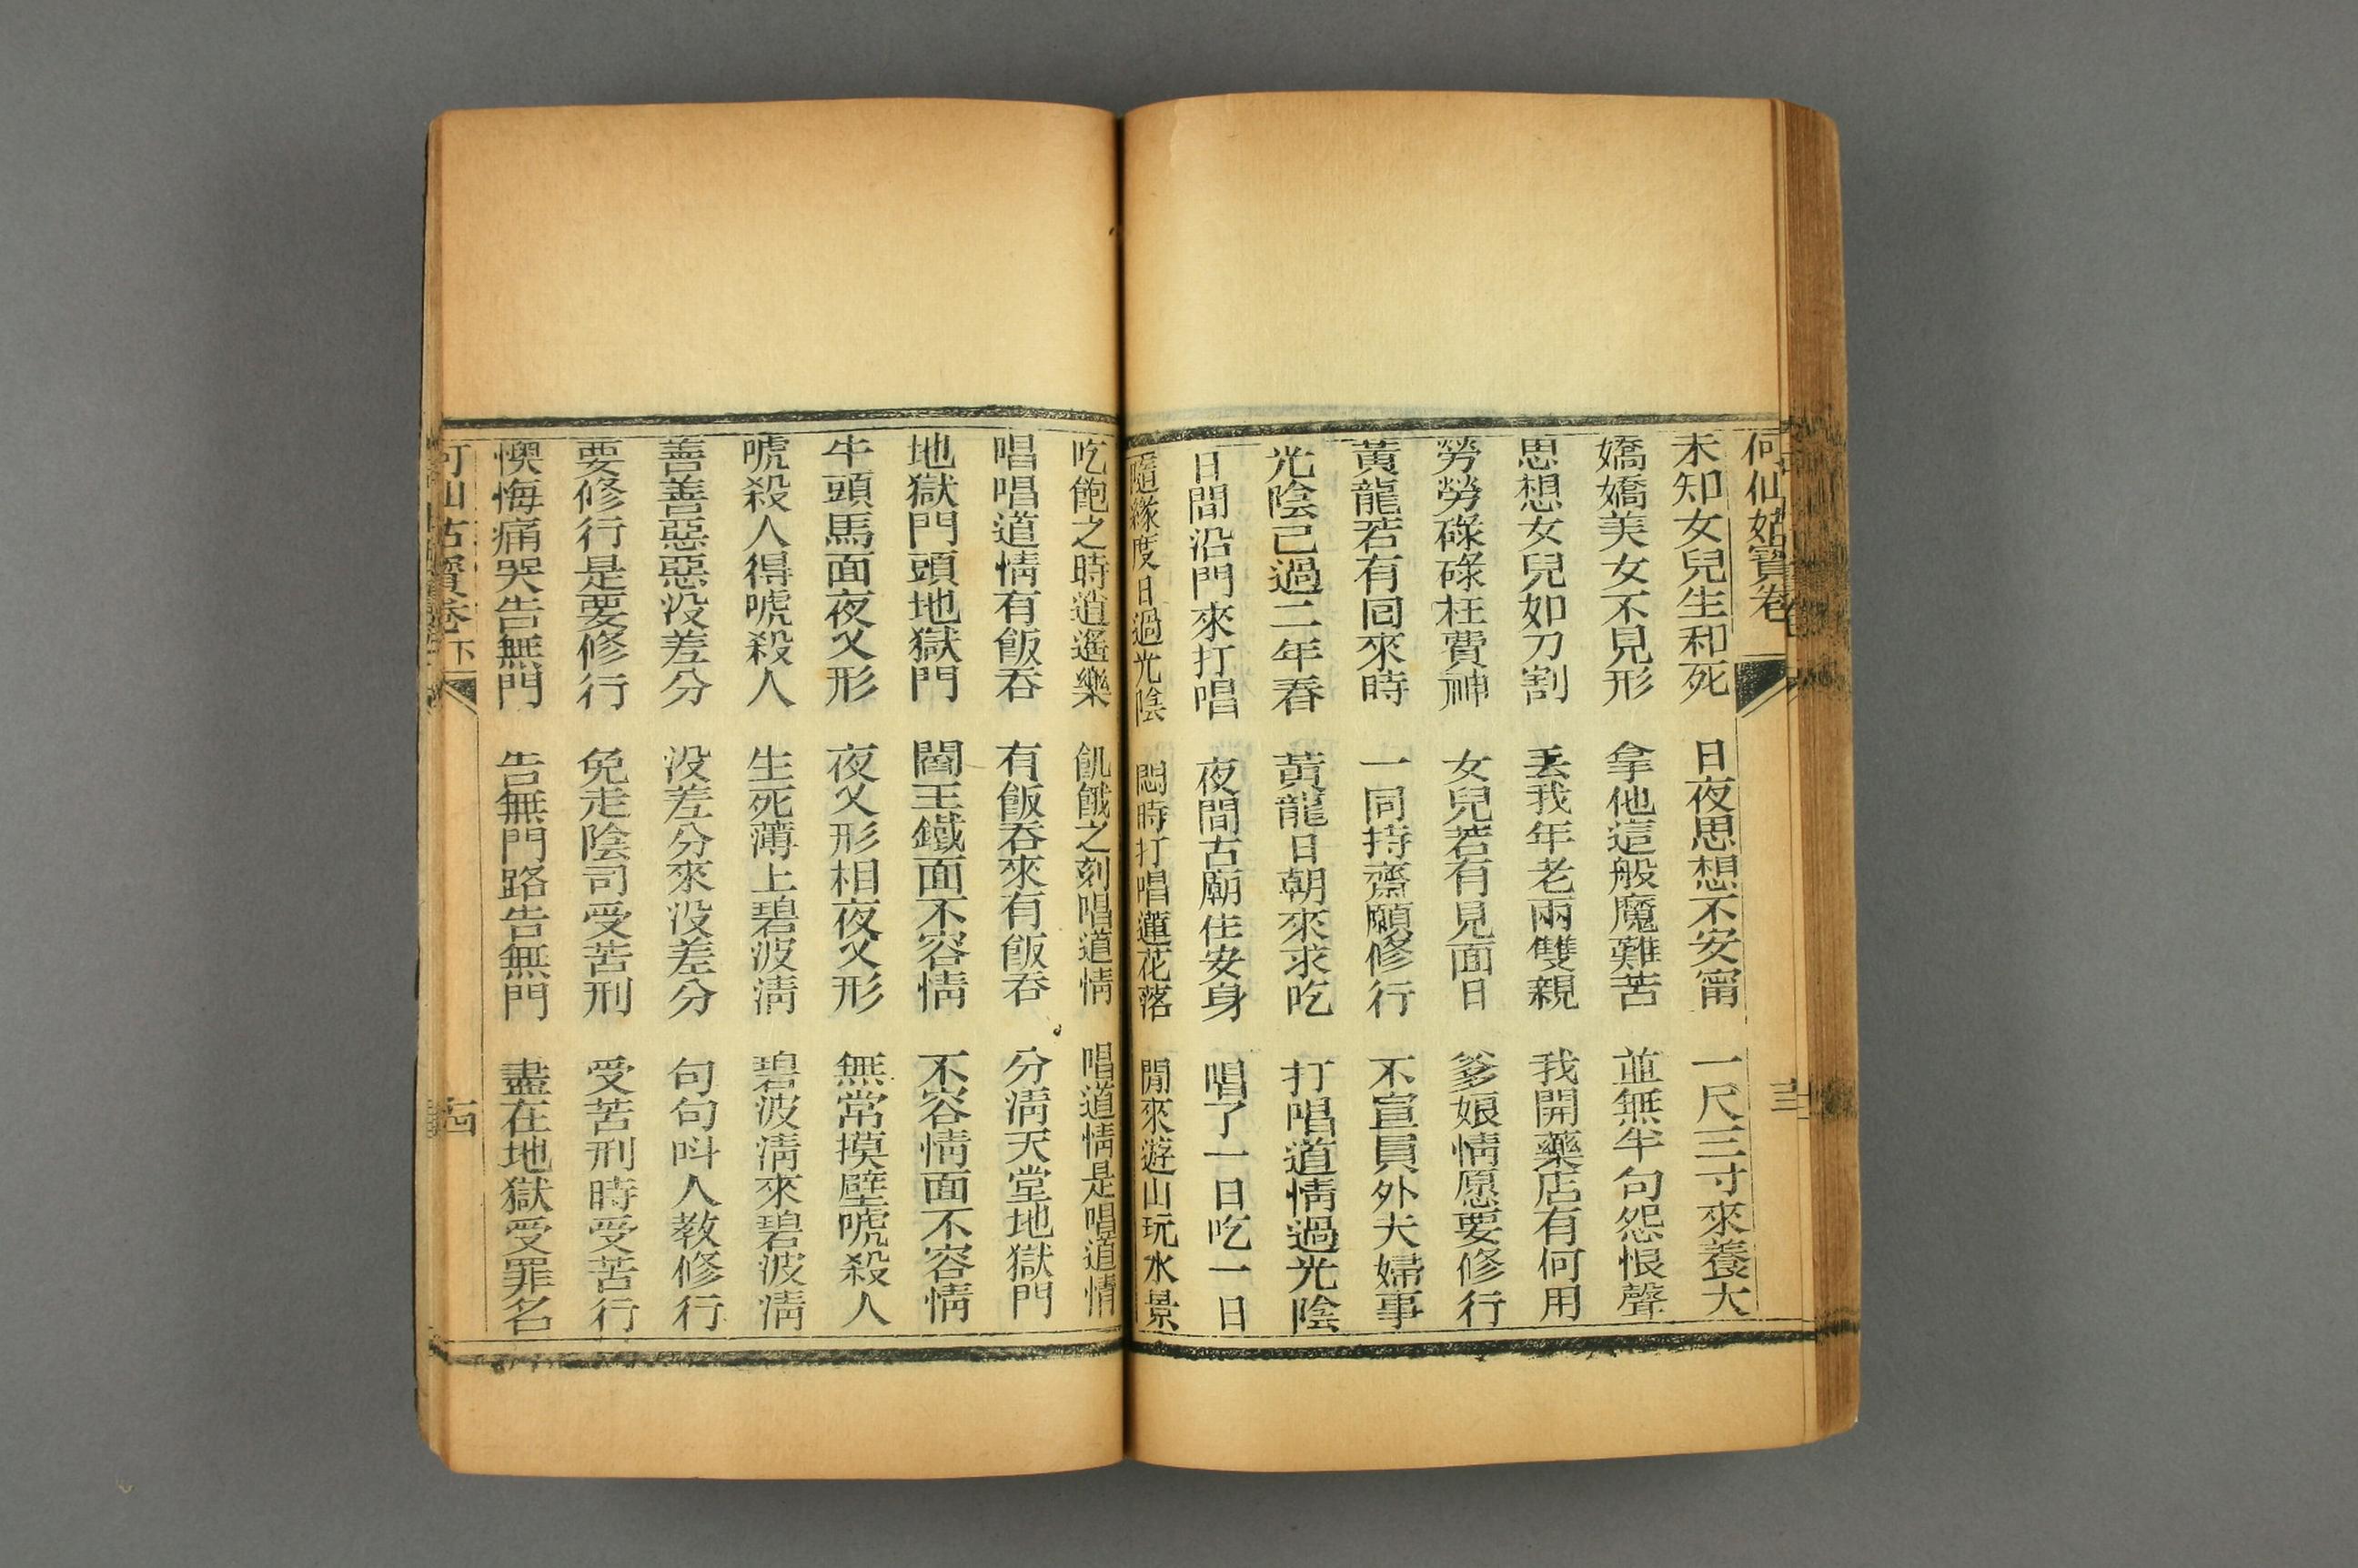 何仙姑寳卷
十三
未知女兒生和死 日夜思想不安甯 一尺三寸來養大
嬌嬌美女不見形 拿他這般魔難苦 並無半句怨恨聲
思想女兒如刀割 丢我年老兩雙親 我開藥店有何用
勞勞碌碌枉費神 女兒若有見面日 爹娘情愿要修行
黃龍若有囘來時 一同持齋願修行 不宣員外夫婦事
光陰已過二年春 黃龍日朝來求吃 打唱道情過光陰
日間沿門來打唱 夜間古廟住安身 唱了一日吃一日
隨緣度日過光陰 悶時打唱蓮花落 閒來遊山玩水景
吃飽之時逍遙樂 飢餓之刻唱道情 唱道情是唱道情
唱唱道情有飯吞 有飯吞來有飯吞 分清天堂地獄門
地獄門頭地獄門 閻王鐵面不容情 不容情面不容情
牛頭馬面夜乂形 夜乂形相夜乂形 無常摸壁唬殺人
唬殺人得唬殺人 生死薄上碧波淸 碧波淸來碧波淸
善善惡惡没差分 没差分來没差分 句句呌人教修行
要修行是要修行 免走陰司受苦刑 受苦刑時受苦行
懊悔痛哭告無門 告無門路告無門 盡在地獄受罪名
何仙姑寳卷 下
十四